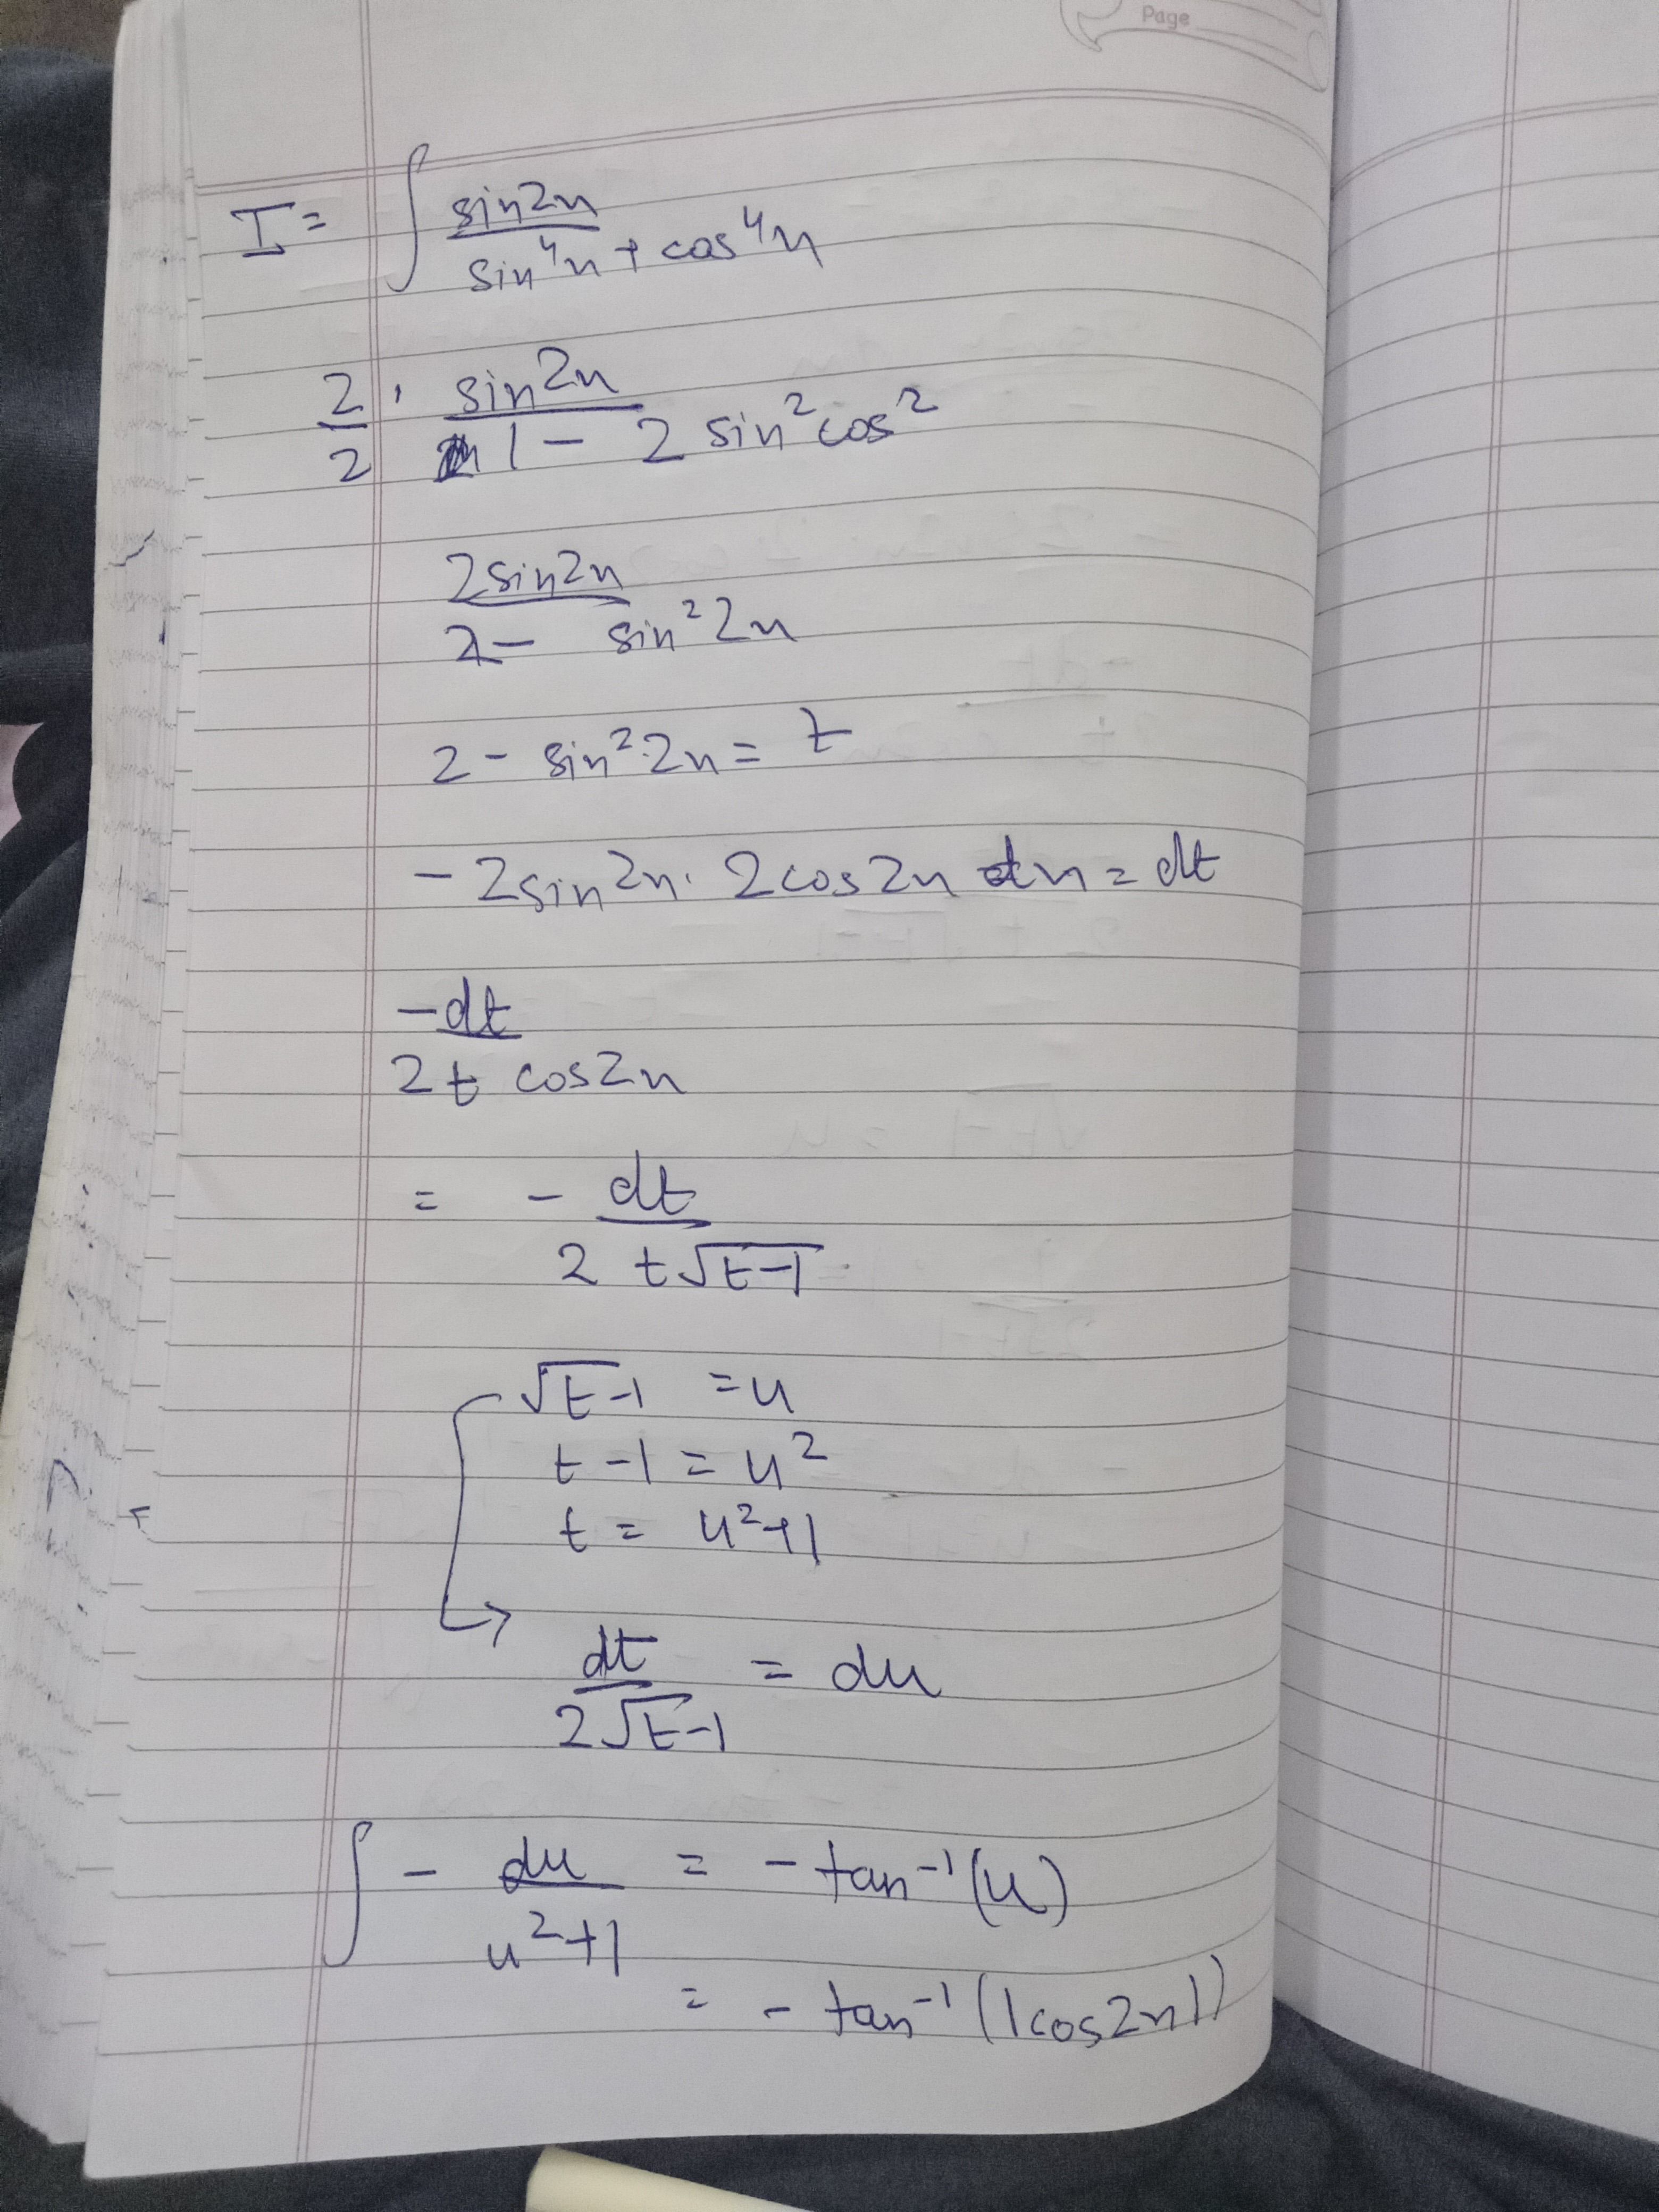 Page
I = ∫ sin2x / sin⁴x + cos⁴x
2/2 · sin2x / 1 - 2 sin² cos²
2sin2x / 2 - sin²2x
2 - sin²2x = t
- 2sin2x. 2cos2x dx = dt
-dt / 2t cos2x
= - dt / 2 t√t-1
√t-1 = u
t - 1 = u²
t = u²+1
dt / 2√t-1 = du
∫ - du / u²+1 = - tan⁻¹(u)
= - tan⁻¹(|cos2x|)